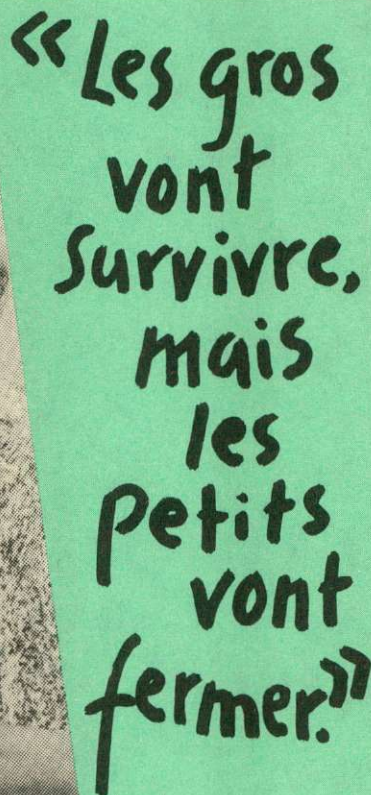 «Les gros
vont
survivre,
mais
les
petits
vont
fermer.»